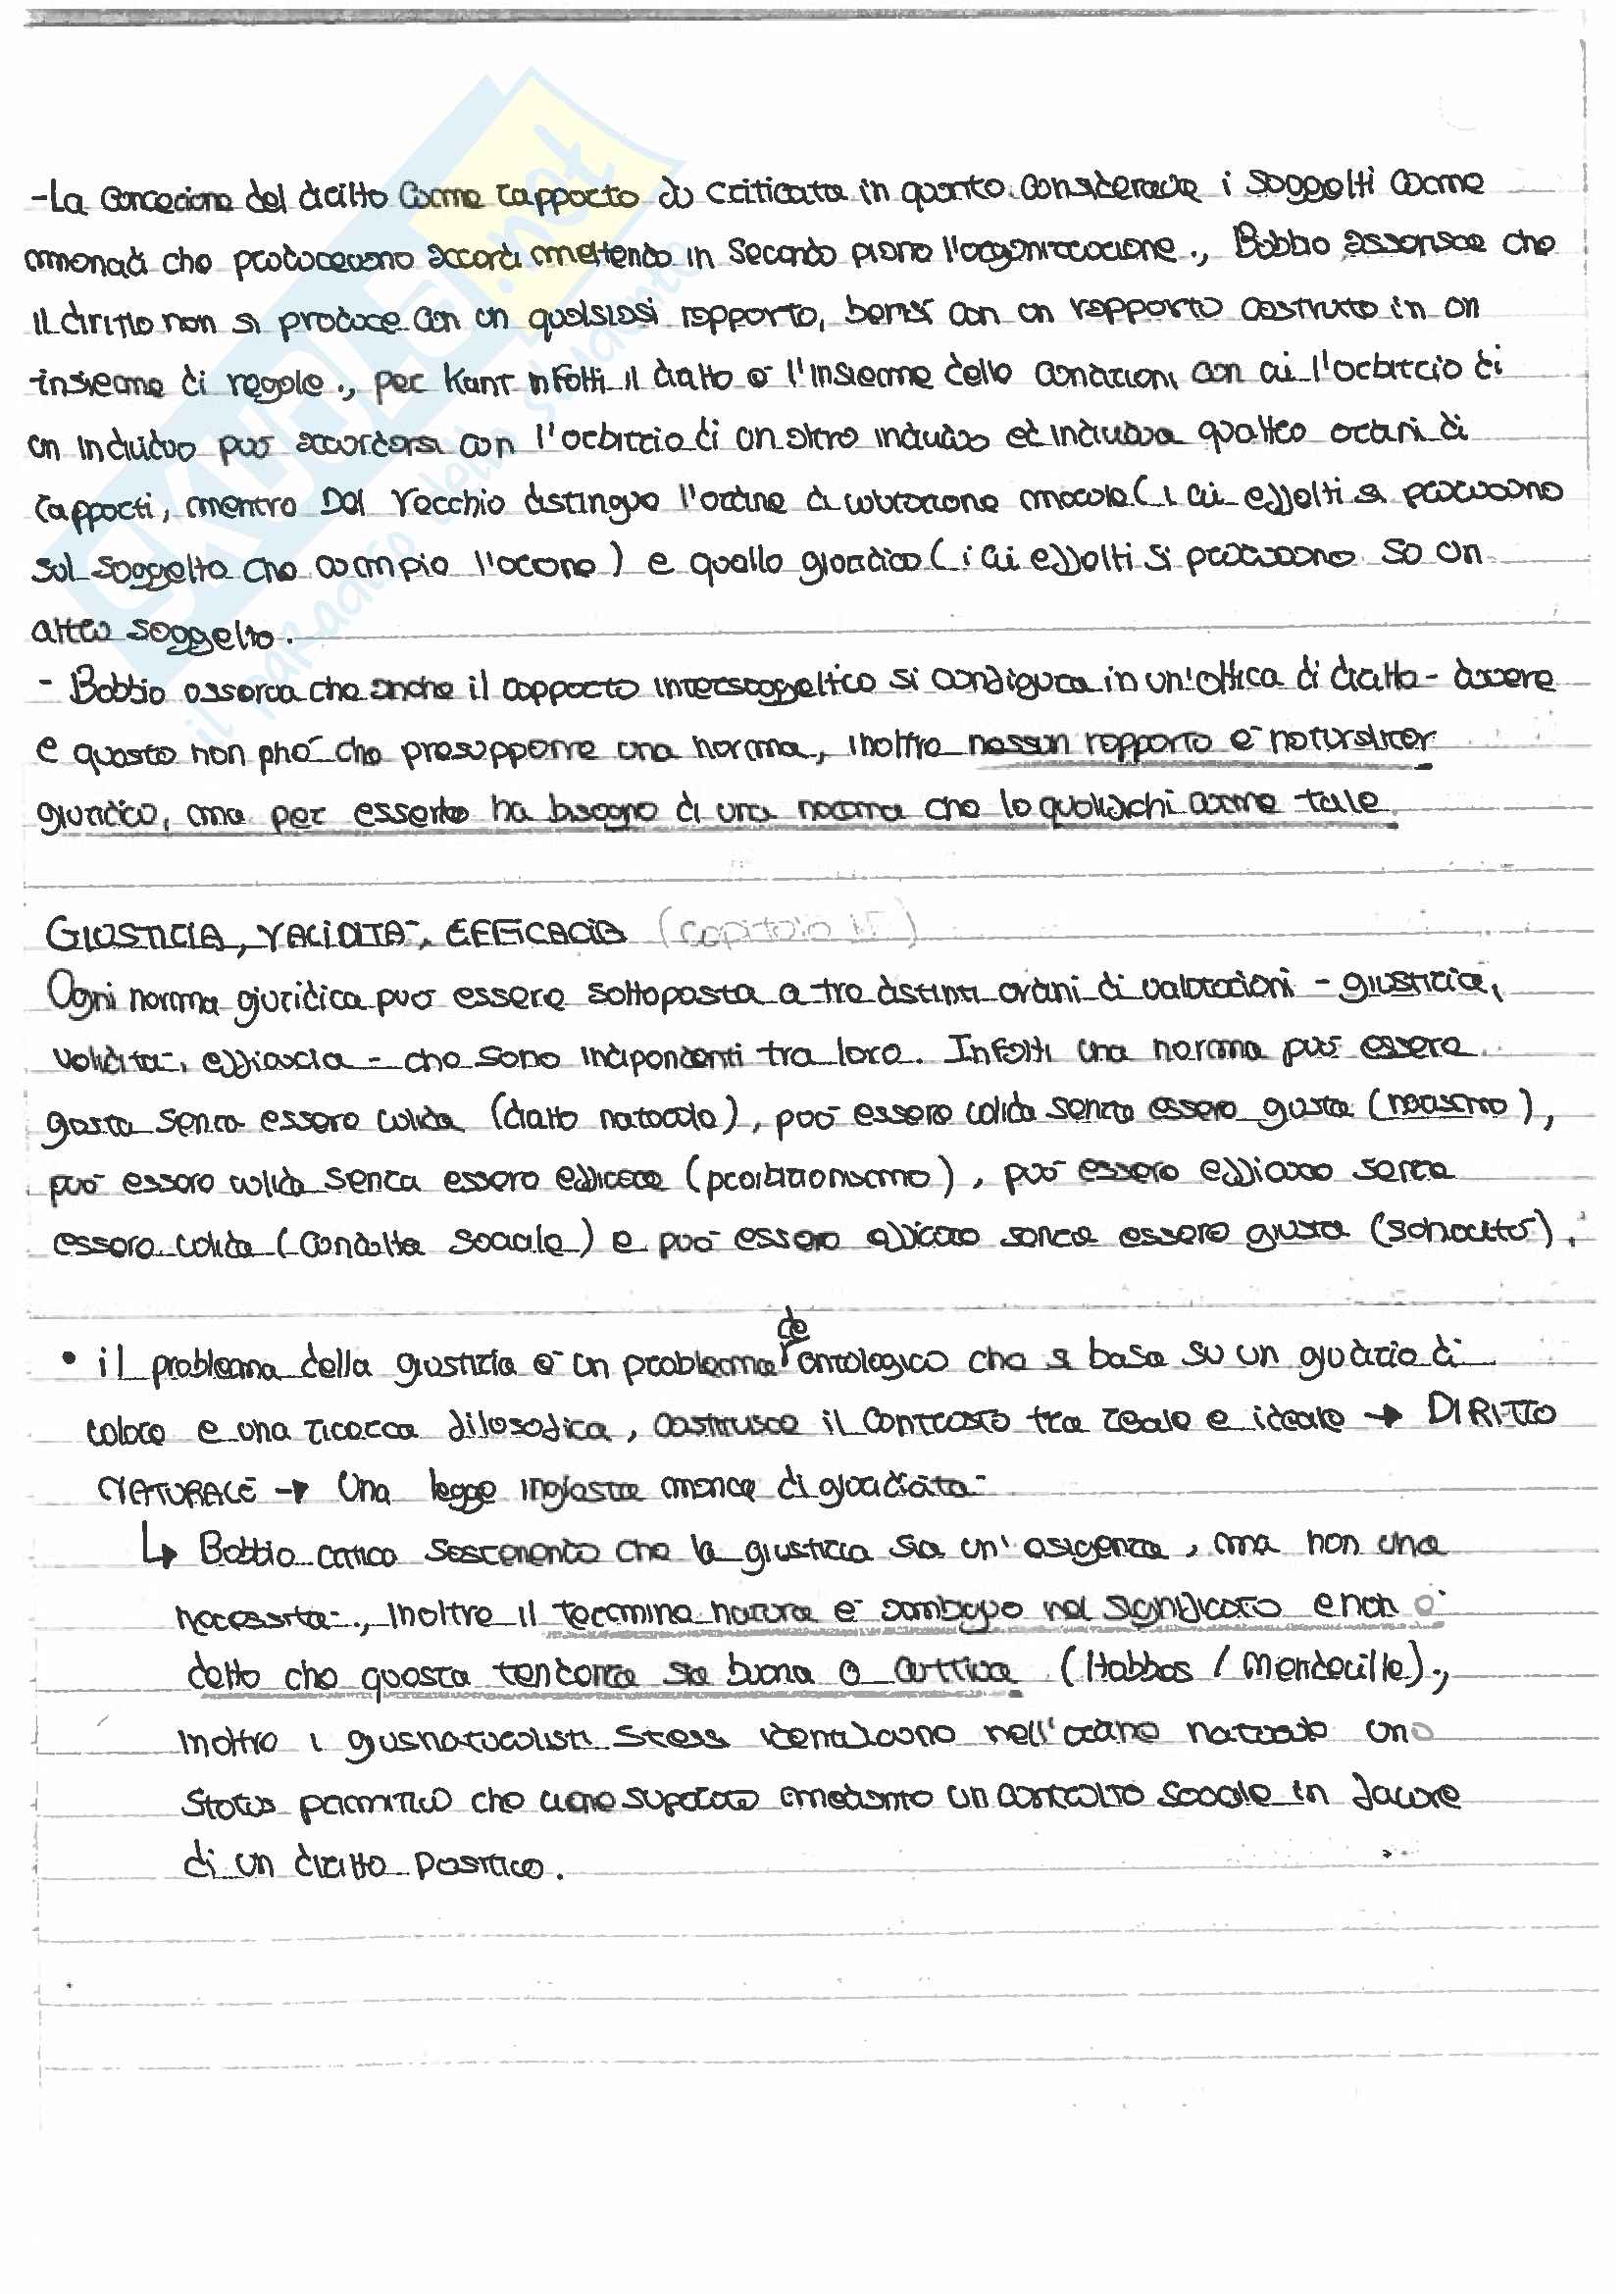 -La concezione del diritto come rapporto fu criticata in quanto considerava i soggetti come
monadi che producevano accordi mettendo in secondo piano l'organizzazione., Bobbio asserisce che
il diritto non si produce con un qualsiasi rapporto, bensì con un rapporto costruito in un
insieme di regole., per Kant infatti il diritto è l'insieme delle condizioni con cui l'arbitrio di
un individuo può accordarsi con l'arbitrio di un altro individuo ed individua quattro ordini di
rapporti, mentre Del Vecchio distingue l'ordine di valutazione morale (i cui effetti si producono
sul soggetto che compie l'azione) e quello giuridico (i cui effetti si producono su un
altro soggetto.
- Bobbio osserva che anche il rapporto intersoggettivo si configura in un'ottica di diritto-dovere
e questo non può che presupporre una norma, inoltre nessun rapporto è naturaliter
giuridico, ma per esserlo ha bisogno di una norma che lo qualifichi come tale
GIUSTIZIA, VALIDITÀ, EFFICACIA (capitolo II)
Ogni norma giuridica può essere sottoposta a tre distinti ordini di valutazioni - giustizia,
validità, efficacia - che sono indipendenti tra loro. Infatti una norma può essere
giusta senza essere valida (diritto naturale), può essere valida senza essere giusta (razzismo),
può essere valida senza essere efficace (proibizionismo), può essere efficace senza
essere valida (condotta sociale) e può essere efficace senza essere giusta (schiavitù).
de
• il problema della giustizia è un problema ontologico che si basa su un giudizio di
valore e una ricerca filosofica, costruisce il contrasto tra reale e ideale → DIRITTO
NATURALE → Una legge ingiusta manca di giuridicità
↳ Bobbio critica sostenendo che la giustizia sia un'esigenza, ma non una
necessità., inoltre il termine natura è ambiguo nel significato e non è
detto che questa tendenza sia buona o cattiva (Hobbes / Mandeville).,
inoltre i giusnaturalisti stessi identificano nell'ordine naturale uno
status primitivo che viene superato mediante un contratto sociale in favore
di un diritto positivo.